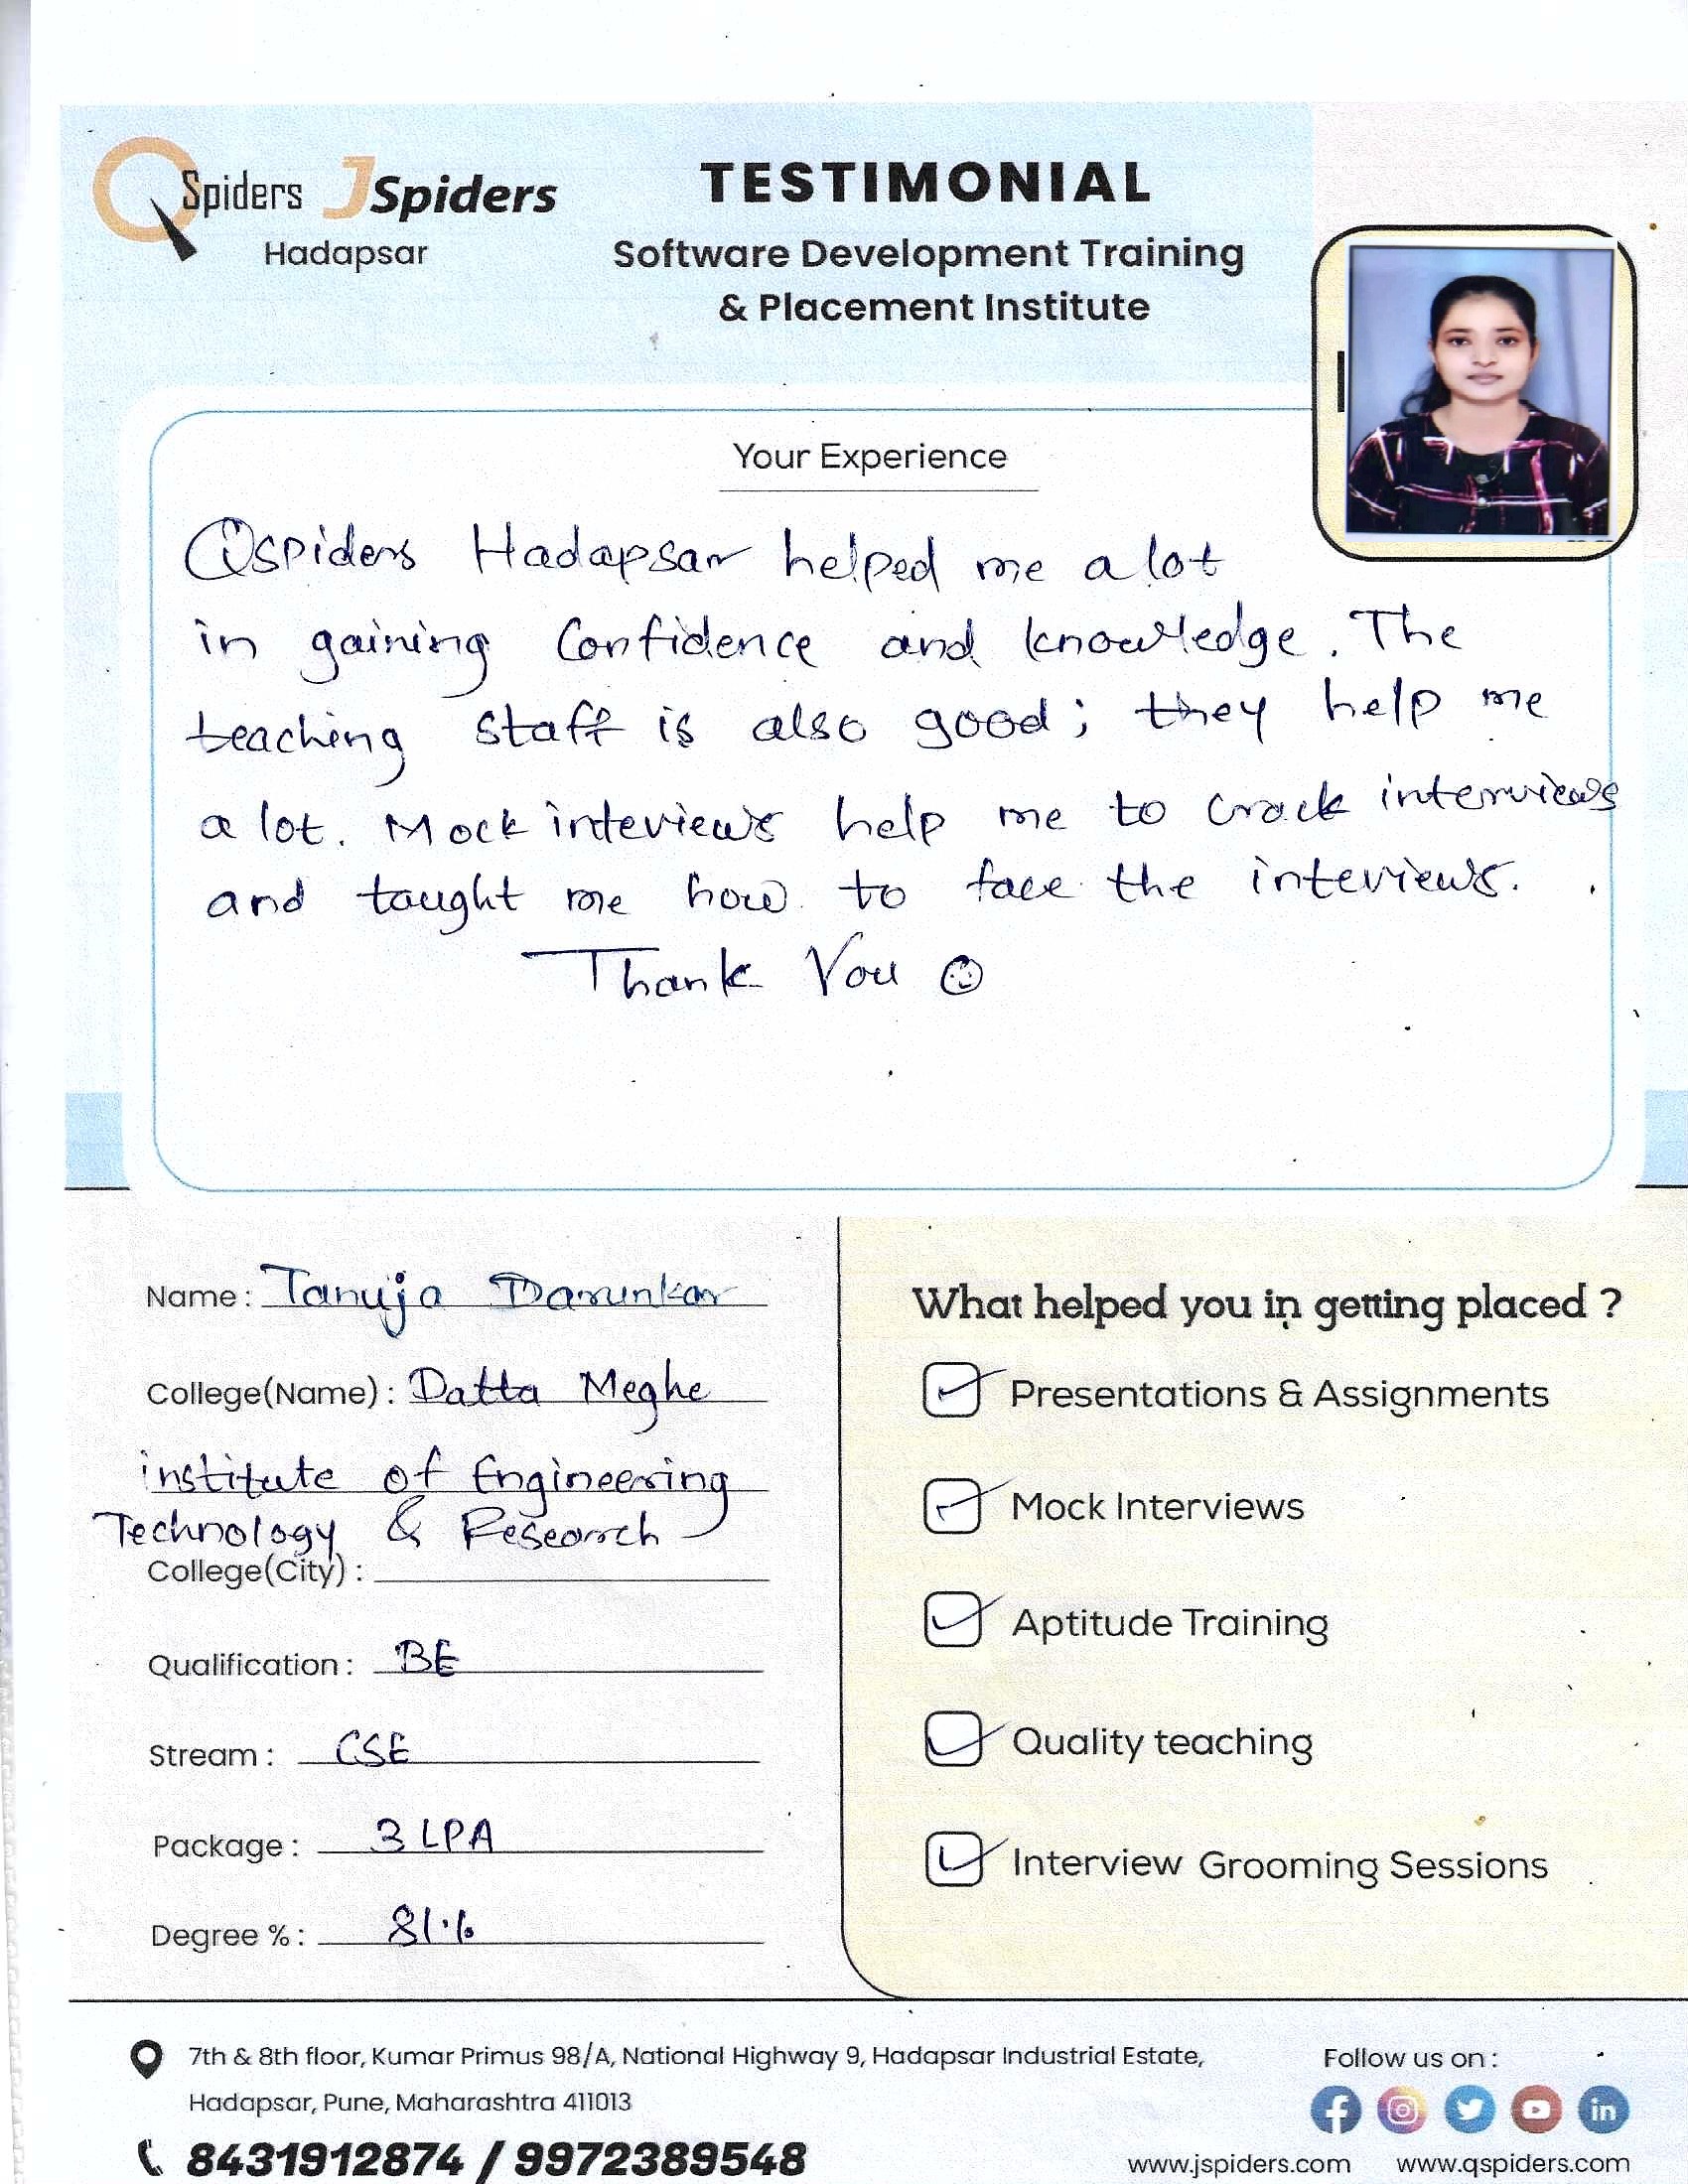 QSpiders JSpiders
Hadapsar
TESTIMONIAL
Software Development Training
& Placement Institute
Your Experience
Qspiders Hadapsar helped me a lot
in gaining Confidence and knowledge. The
teaching staff is also good; they help me
a lot. Mock inteviews help me to crack interviews
and taught me how to face the inteviews.
Thank You ☺
Name: Tanuja Darunkar
College(Name): Datta Meghe
institute of Engineering
Technology & Research
College(City):
Qualification: BE
Stream: CSE
Package: 3 LPA
Degree %: 81%
What helped you in getting placed ?
Presentations & Assignments
Mock Interviews
Aptitude Training
Quality teaching
Interview Grooming Sessions
7th & 8th floor, Kumar Primus 98/A, National Highway 9, Hadapsar Industrial Estate,
Hadapsar, Pune, Maharashtra 411013
8431912874 / 9972389548
Follow us on :
www.jspiders.com www.qspiders.com